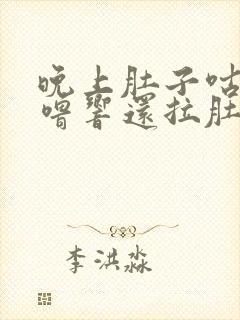 晚上肚子咕
噜響還拉肚
李洪淼